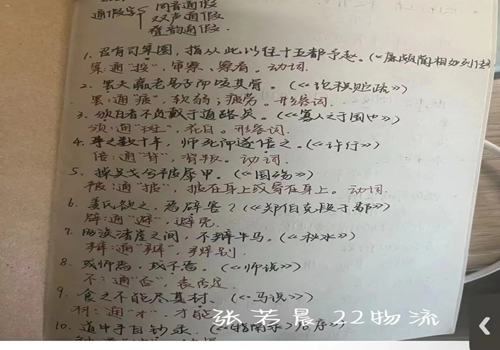 通假字 同音通假
双声通假
叠韵通假
1. 召有司案图，指从此以往十五都予赵。(《廉颇蔺相如列传
案：通"按"，审察、察看。动词.
2. 罢夫羸老易子而咬其骨。(《论积贮疏》)
罢：通"疲"，软弱；疲劳。形容词.
3. 颁白者不负戴于道路矣。(《寡人之于国也》)
颁：通"斑"，花白。形容词.
4. 事之数十年，师死而遂倍之。(《许行》)
倍：通"背"，背叛。动词.
5. 操吴戈兮被犀甲。(《国殇》)
被：通"披"，披在身上或穿在身上。动词.
6. 姜氏欲之，焉辟害？(《郑伯克段于鄢》)
辟：通"避"，避免.
7. 两涘渚崖之间，不辩牛马。(《秋水》)
辩：通"辨"，辨别
8. 或师焉，或不焉。(《师说》)
不：通"否"，表否定
9. 食之不能尽其材。(《马说》)
材：通"才"，才能
10. 道中手自钞录。(《指南录》后序》)
张若晨 22物流